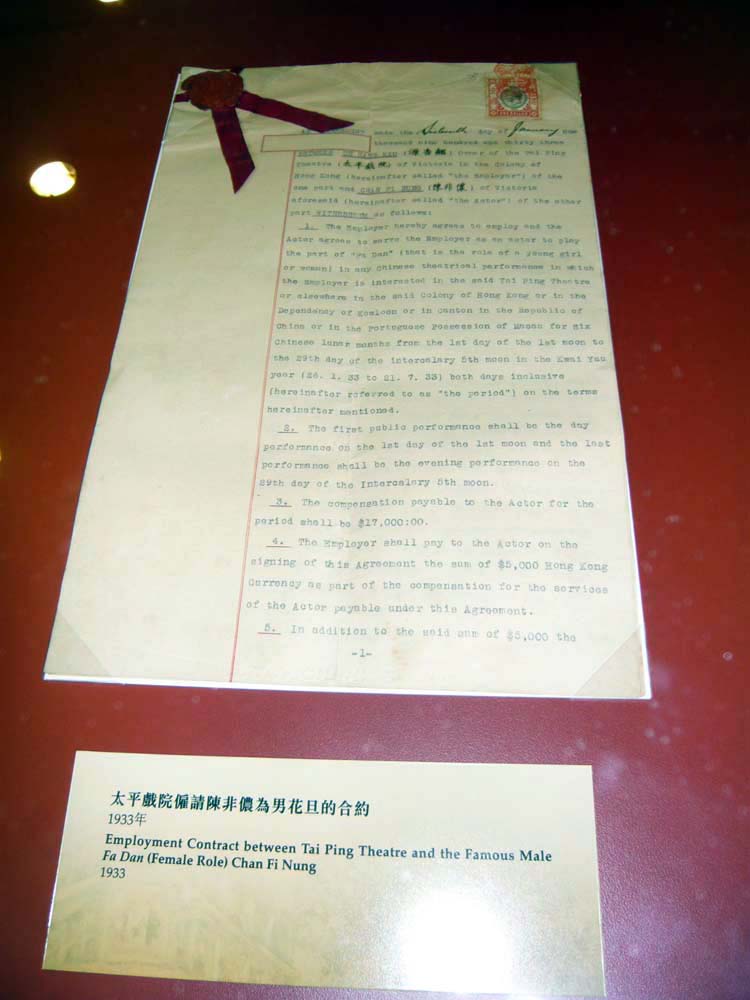 made the day of January one
thousand nine hundred and thirty three
BETWEEN (源杏翹) Owner of the Tai Ping
Theatre (太平戲院) of Victoria in the Colony of
Hong Kong (hereinafter called "the Employer") of the
one part and CHAN FI NUNG (陳非儂) of Victoria
aforesaid (hereinafter called "the Actor") of the other
part WITNESSETH as follows:
1. The Employer hereby agrees to employ and the
Actor agrees to serve the Employer as an actor to play
the part of "Fa Dan" (that is the role of a young girl
or woman) in any Chinese theatrical performance in which
the Employer is interested in the said Tai Ping Theatre
or elsewhere in the said Colony of Hong Kong or in the
Dependency of Kowloon or in Canton in the Republic of
China or in the Portuguese possession of Macao for Six
Chinese lunar months from the 1st day of the 1st moon to
the 29th day of the intercalary 5th moon in the Kwai Yau
year (26. 1. 33 to 21. 7. 33) both days inclusive
(hereinafter referred to as "the period") on the terms
hereinafter mentioned.
2. The first public performance shall be the day
performance on the 1st day of the 1st moon and the last
performance shall be the evening performance on the
29th day of the Intercalary 5th moon.
3. The compensation payable to the Actor for the
period shall be $17,000:00.
4. The Employer shall pay to the Actor on the
signing of this Agreement the sum of $5,000 Hong Kong
Currency as part of the compensation for the services
of the Actor payable under this Agreement.
5. In addition to the said sum of $5,000 the
-1-
太平戲院僱請陳非儂為男花旦的合約
1933年
Employment Contract between Tai Ping Theatre and the Famous Male
Fa Dan (Female Role) Chan Fi Nung
1933